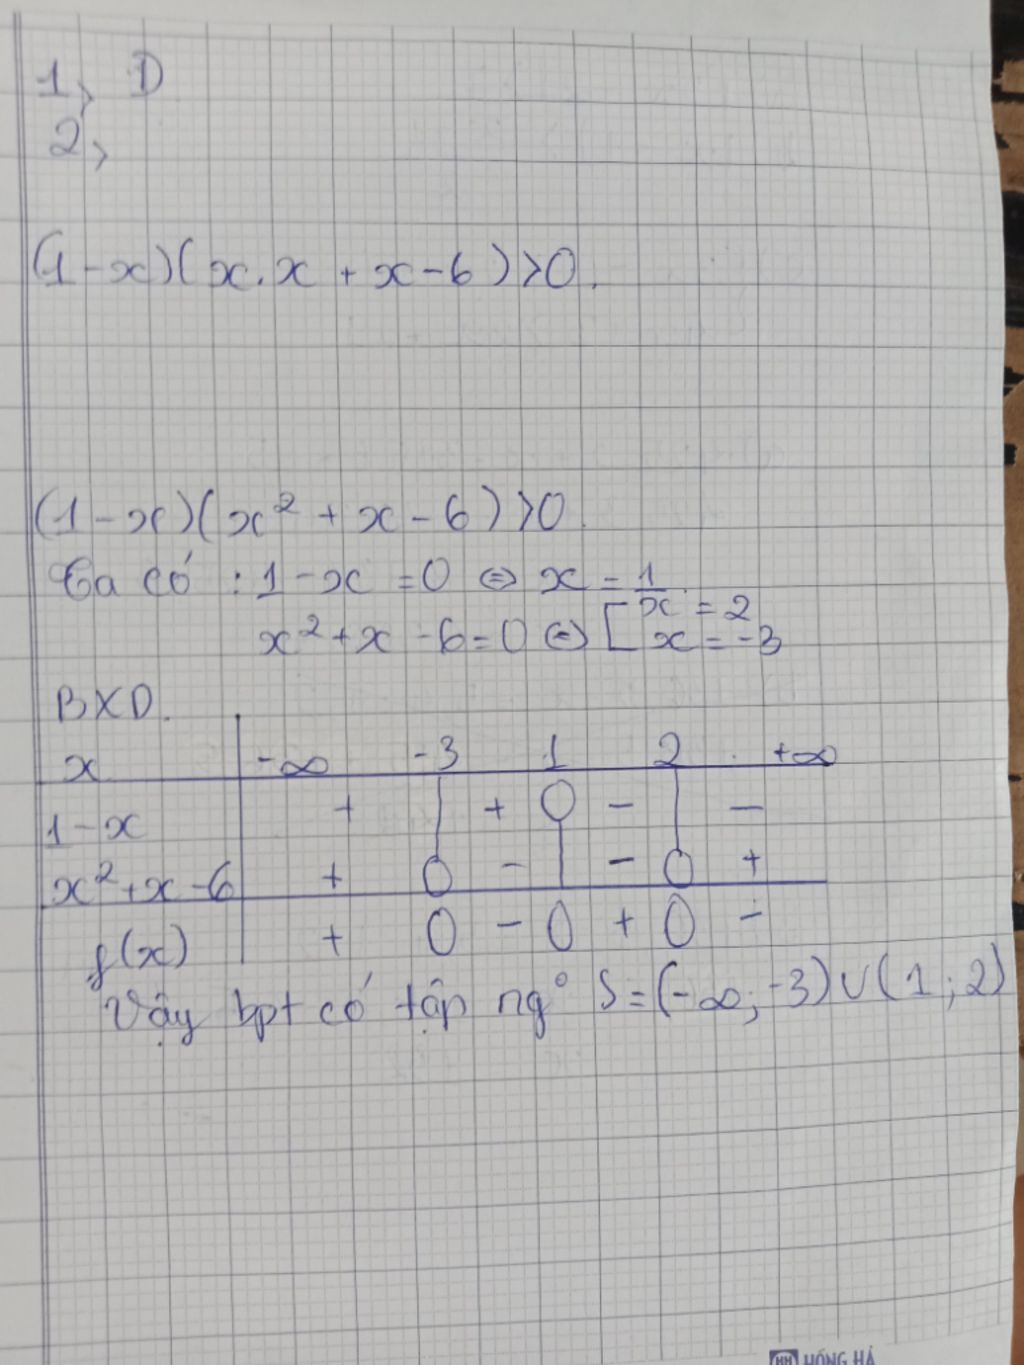 1, D
2,
(1-x)(x.x + x-6)>0.
(1-x)(x² + x-6)>0.
Ta có : 1-x =0 ⇔ x = 1
x²+x-6=0 ⇔ [ x = 2
x = -3
BXD.
x -∞ -3 1 2 +∞
1-x + | + 0 - | -
x²+x-6 + 0 - | - 0 +
f(x) + 0 - 0 + 0 -
Vậy bpt có tập ng° S=(-∞;-3)∪(1;2)
HH HỒNG HÀ